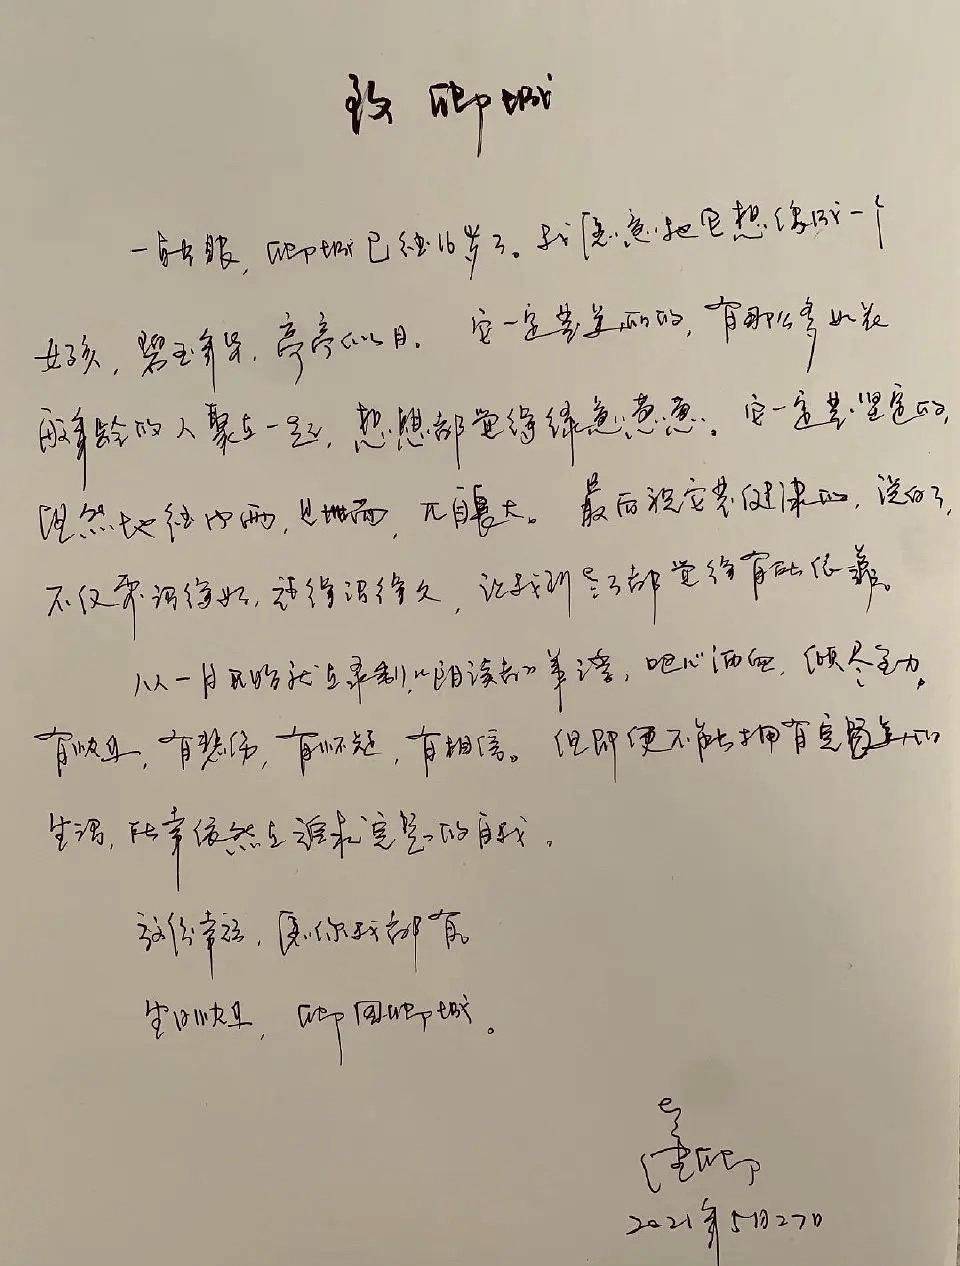 致 卿城
一转眼，卿城已经16岁了。我愿意把它想像成一个
女孩，碧玉年华，亭亭如月。它一定是美丽的，有那么多如花
般年龄的人聚在一起，想想都觉得绿意葱葱。它一定是坚定的，
既然地经历雨，见世面，不自大。最后祝它是健康的，说好了，
不仅要活得好，还得活得久，让我们学子都觉得有所依靠。
从一月开始就在录制《朗读者》第三季，呕心洒血，倾尽全力。
有快乐，有悲伤，有怀疑，有相信。但即便不能拥有完美的
生活，所幸依然在追求完整的自我。
这份幸福，愿你我都有。
生日快乐，卿同卿城。
董卿
2021年5月27日